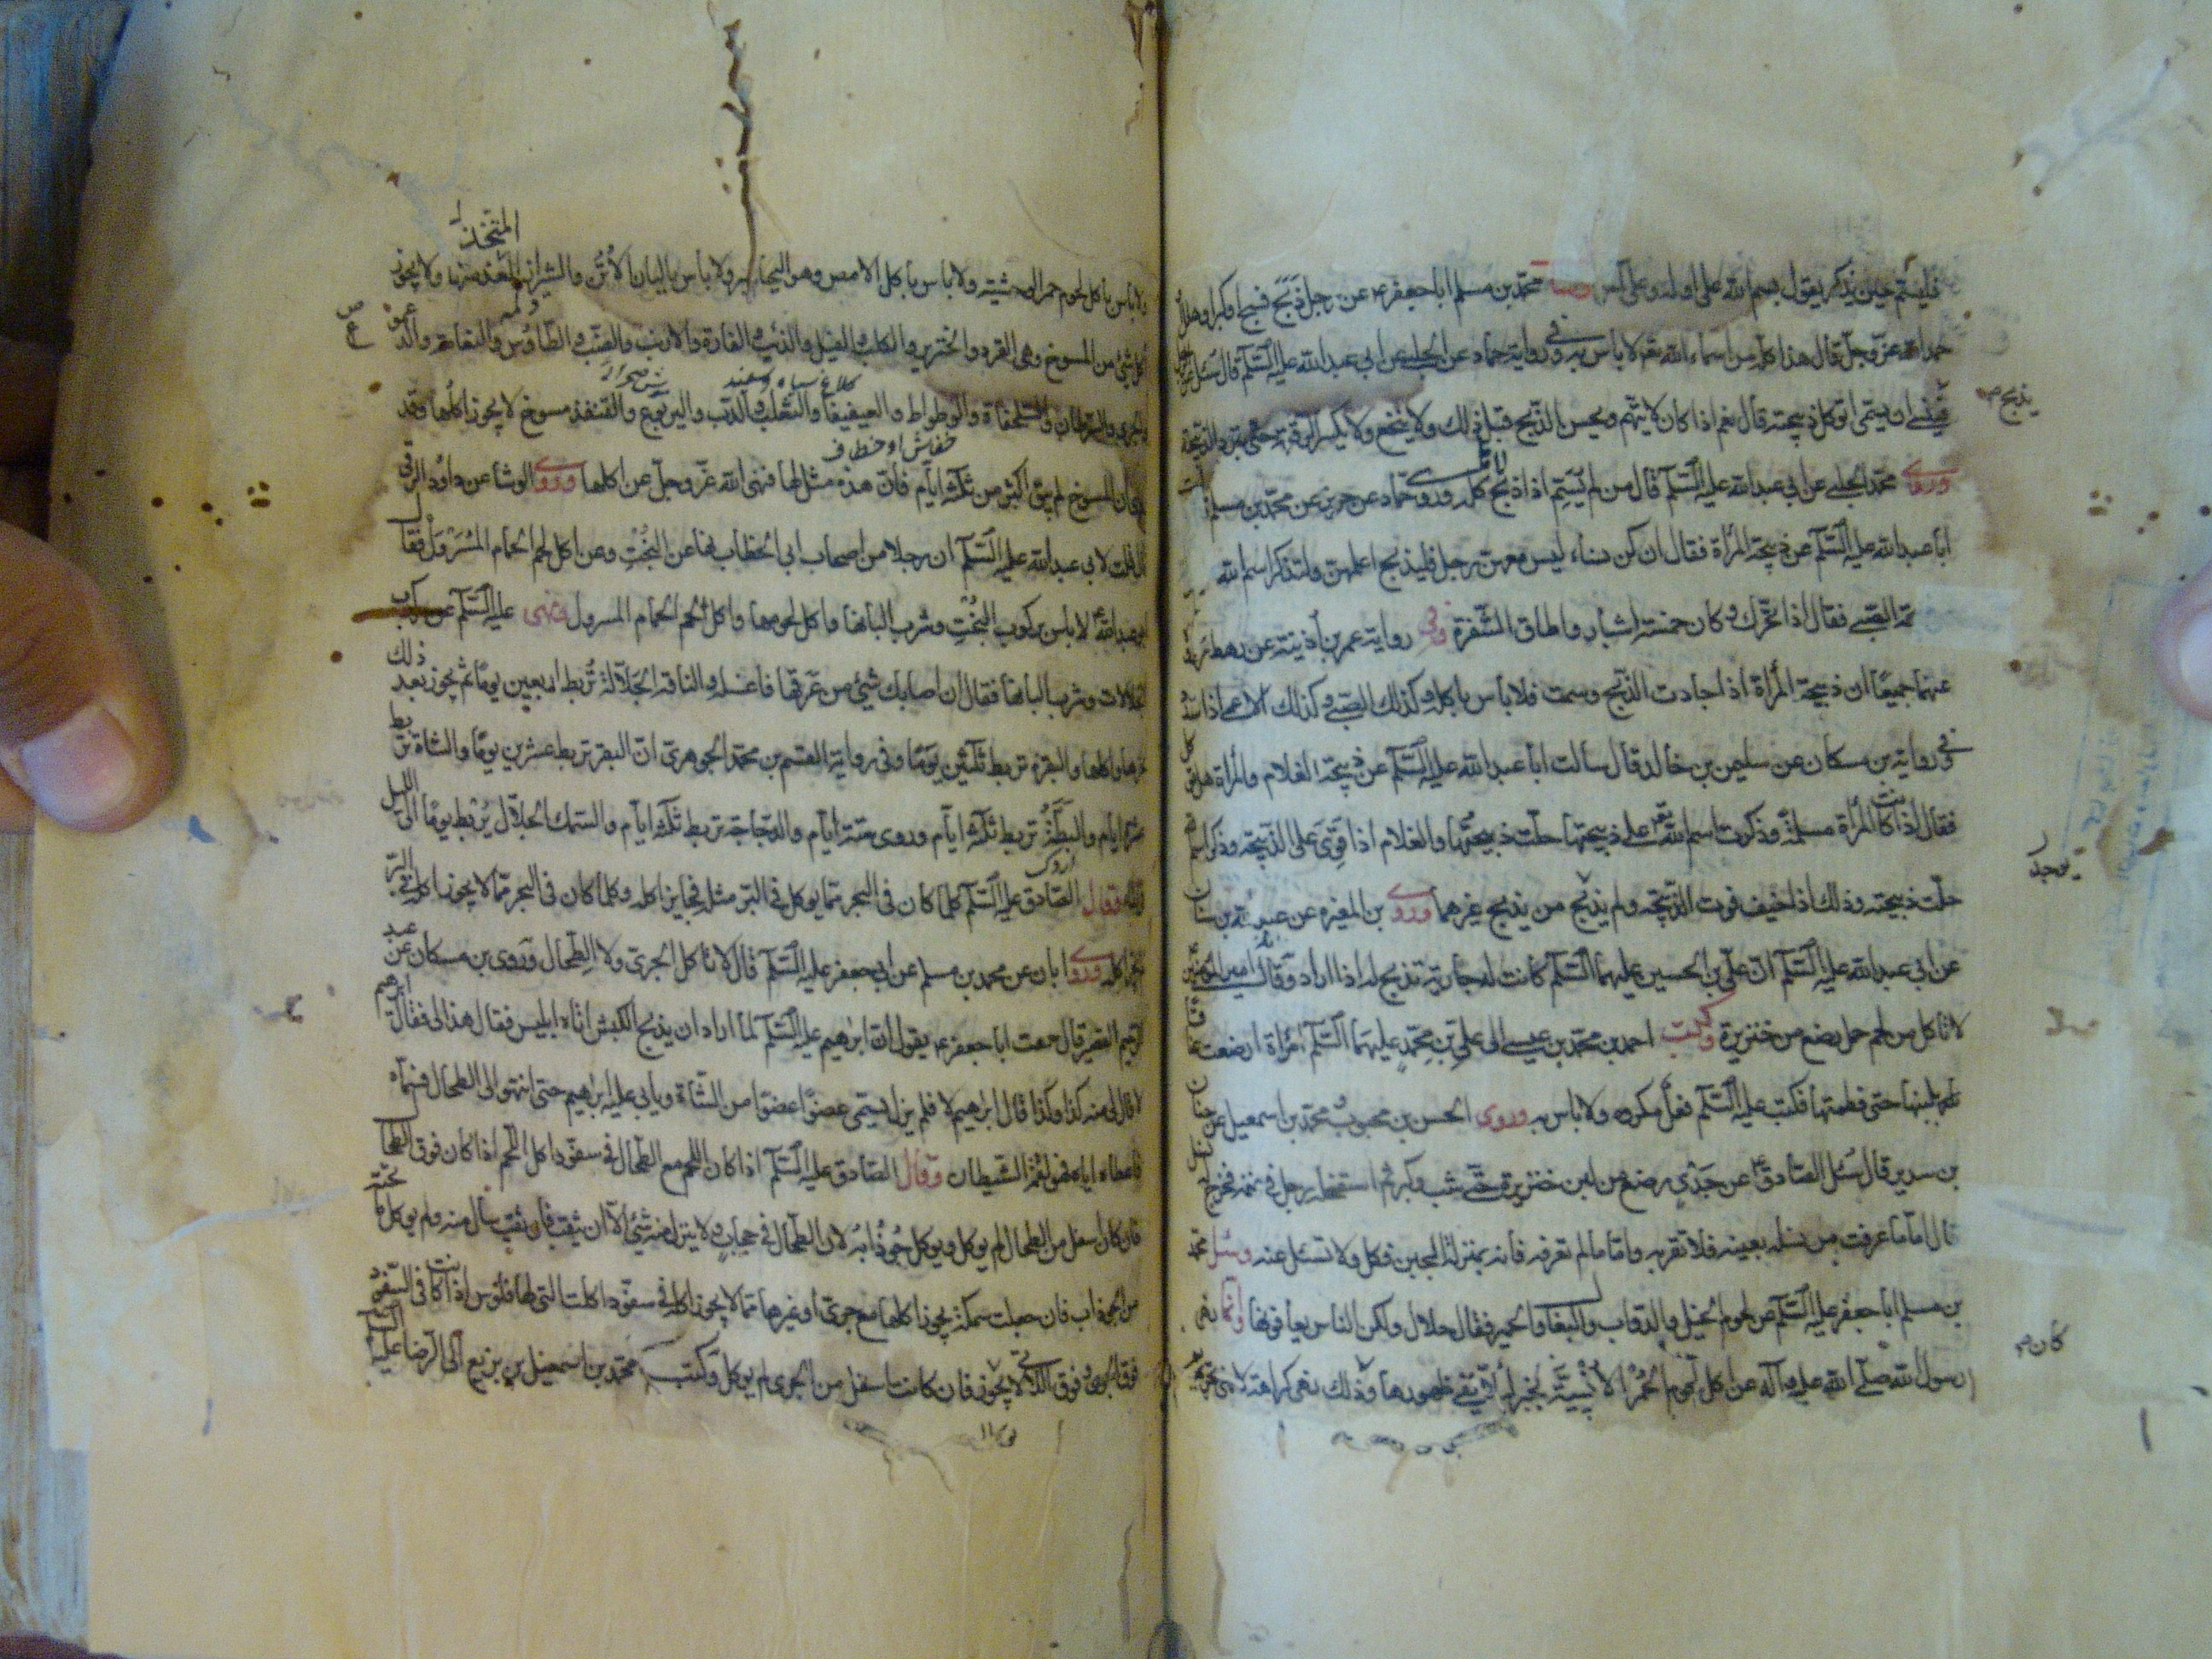 فليسم حين يذكر يقول بسم الله على اوله وعلى آخره محمد بن مسلم ابا جعفر ع عن رجل ذبح فسبح او كبر او هلل
حمد الله عز وجل قال هذا كله من اسماء الله تع لا باس به وفي رواية حماد عن الحلبي عن ابي عبد الله عليه السلم قال سئل عن رجل
فنسي ان يسمى اتوكل ذبيحته قال نعم اذا كان لا يتهم ويحسن الذبح قبل ذلك ولا ينخع ولا يكسر الرقبة حتى تبرد الذبيحة
يذبح
وروى محمد الحلبي عن ابي عبد الله عليه السلم قال من لم يسم اذا ذبح فلا تأكله وروى حماد عن حريز عن محمد بن مسلم
ابا عبد الله عليه السلم عن ذبيحة المرأة فقال ان كن نساء ليس معهن رجل فليذبح اعلمهن ولتذكر اسم الله
الصبي فقال اذا تحرك وكان خمسة اشبار واطاق الشفرة وفي رواية عمر بن اذينة عن رهط
عنهما جميعا ان ذبيحة المرأة اذا اجادت الذبح وسمت فلا باس باكله وكذلك الصبي وكذلك الاعمى اذا سدد
في رواية بن مسكان عن سليمن بن خالد قال سألت ابا عبد الله عليه السلم عن ذبيحة الغلام والمرأة هل توكل
فقال اذا كانت المرأة مسلمة وذكرت اسم الله تع على ذبيحتها حلت ذبيحتها والغلام اذا قوي على الذبيحة وذكر اسم
حلت ذبيحته وذلك اذا خيف فوت الذبيحة ولم يوجد من يذبح غيرهما وروى بن المغيره عن عبد الله بن سنان
يوجد
عن ابي عبد الله عليه السلم ان علي بن الحسين عليهما السلم كانت له جارية تذبح له اذا اراد وقال امير المؤمنين
لا تأكل من لحم حمل رضع من خنزيرة وكتب احمد بن محمد بن عيسى الى علي بن محمد عليهما السلم امرأة ارضعت عناقا
بلبنها حتى فطمتها فكتب عليه السلم فعل مكروه ولا باس به وروى الحسن بن محبوب محمد بن اسمعيل عن حنان
بن سدير قال سئل الصادق ع عن جدي رضع من لبن خنزيرة حتى شب وكبر ثم استفحله رجل في غنمه فخرج له نسل
قال اما ما عرفت من نسله بعينه فلا تقربه واما ما لم تعرفه فانه بمنزلة الجبن فكل ولا تسئل عنه وسئل محمد
بن مسلم ابا جعفر عليه السلم عن لحوم الخيل والدواب والبغال والحمير فقال حلال ولكن الناس يعافونها وانما نهى
كان
رسول الله صلى الله عليه وآله عن اكل لحوم الحمر الانسية بخيبر لئلا تفنى ظهورها وذلك نهى كراهة لا نهى تحريم
المتخذ
ولا باس باكل لحوم حمر الوحشية ولا باس باكل الامص وهو اليحامير ولا باس بالبان الاتن والشيراز المتخذ منها ولا يجوز
كل شيء من المسوخ وهي القرد والخنزير والكلب والفيل والذئب والفارة والارنب والضب والطاوس والنعامة والدعموص
كلاغ سياه وسفيد
والجري والسرطان والسلحفاة والوطواط والعيفيفا والثعلب والدب واليربوع والقنفذ مسوخ لا يجوز اكلها وقد
خفاش او خطاف
ان المسوخ لم يبق اكثر من ثلثة ايام فان هذه مثل لها فنهى الله عز وجل عن اكلها وروى الوشا عن داود الرقي
قال قلت لابي عبد الله عليه السلم ان رجلا من اصحاب ابي الخطاب نهانا عن البخت وعن اكل لحم الحمام المسرول فقال
ابو عبد الله لا باس بركوب البخت وشرب البانها واكل لحومها واكل لحم الحمام المسرول ونهى عليه السلم عن ركوب
الجلالات وشرب البانها فقال ان اصابك شيء من عرقها فاغسله والناقة الجلالة تربط اربعين يوما ثم يجوز بعد ذلك
نحرها واكلها والبقرة تربط ثلثين يوما وفي رواية القسم بن محمد الجوهري ان البقر تربط عشرين يوما والشاة تربط
عشرة ايام والبطة تربط ثلثة ايام وروى ستة ايام والدجاجة تربط ثلثة ايام والسمك الجلال يربط يوما الى الليل
وقال الصادق عليه السلم كلما كان في البحر مما يوكل في البر مثله فجايز اكله وكلما كان في البحر مما لا يجوز اكله في البر
لم يجز اكله وروى ابان عن محمد بن مسلم عن ابي جعفر عليه السلم قال لا تأكل الجري ولا الطحال وروى بن مسكان عن عبد
الرحيم القصير قال سمعت ابا جعفر ع يقول ان ابرهيم عليه السلم لما اراد ان يذبح الكبش اتاه ابليس فقال هذا لي فقال ابرهيم
لا قال لي منه كذا وكذا قال ابرهيم لا فلم يزل يسمى عضوا عضوا من الشاة ويابى عليه ابرهيم حتى انتهوا الى الطحال فسماه
فاعطاه اياه فهو لقمة الشيطان وقال الصادق عليه السلم اذا كان اللحم مع الطحال في سفود اكل اللحم اذا كان فوق الطحال
فان كان اسفل من الطحال لم يوكل ويوكل جوذابه لان الطحال في حجاب ولا ينزل منه شيء الا ان يثقب فان ثقب سال منه ولم يوكل ما تحته
من الجوذاب فان جعلت سمكة يجوز اكلها مع جري او غيرها مما لا يجوز اكله في سفود اكلت التي لها فلوس اذا كانت في السفود
فوق الجري وفوق التي لا يجوز فان كانت اسفل من الجري لم يوكل وكتب محمد بن اسمعيل بن بزيع الى الرضا عليه السلم